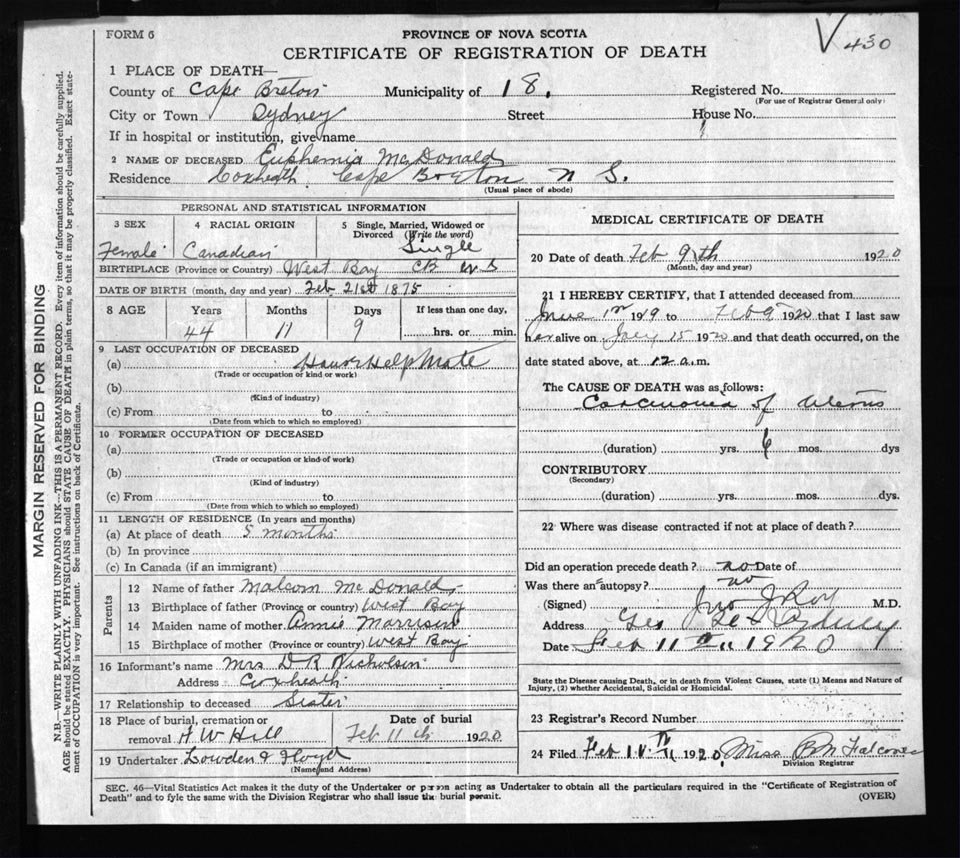 FORM 6
PROVINCE OF NOVA SCOTIA
CERTIFICATE OF REGISTRATION OF DEATH
V 430
1 PLACE OF DEATH—
County of Cape Breton Municipality of 18. Registered No.
(For use of Registrar General only)
City or Town Sydney Street House No.
If in hospital or institution, give name
2 NAME OF DECEASED Euphemia McDonald
Residence Coxheath Cape Breton N S.
(Usual place of abode)
PERSONAL AND STATISTICAL INFORMATION
3 SEX Female
4 RACIAL ORIGIN Canadian
5 Single, Married, Widowed or Divorced (Write the word) Single
BIRTHPLACE (Province or Country) West Bay CB NS
DATE OF BIRTH (month, day and year) Feb 21st 1875
8 AGE Years Months Days If less than one day,
44 11 9 hrs. or min.
9 LAST OCCUPATION OF DECEASED
(a) Help Mate
(Trade or occupation or kind or work)
(b)
(Kind of industry)
(c) From to
(Date from which to which so employed)
10 FORMER OCCUPATION OF DECEASED
(a)
(Trade or occupation or kind of work)
(b)
(Kind of industry)
(c) From to
(Date from which to which so employed)
11 LENGTH OF RESIDENCE (In years and months)
(a) At place of death 5 months
(b) In province
(c) In Canada (if an immigrant)
Parents
12 Name of father Malcom McDonald
13 Birthplace of father (Province or country) West Bay
14 Maiden name of mother Annie Morrison
15 Birthplace of mother (Province or country) West Bay
16 Informant's name Mrs D R Nicholson
Address Coxheath
17 Relationship to deceased Sister
18 Place of burial, cremation or removal H W Hill
Date of burial Feb 11th 1920
19 Undertaker Lowden & Floyd
(Name and Address)
MEDICAL CERTIFICATE OF DEATH
20 Date of death Feb 9th 1920
(Month, day and year)
21 I HEREBY CERTIFY, that I attended deceased from
1919 to Feb 9 1920 that I last saw
her alive on 15 1920 and that death occurred, on the
date stated above, at 12 a.m.
The CAUSE OF DEATH was as follows:
Carcinoma of uterus
(duration) yrs. 6 mos. dys
CONTRIBUTORY
(Secondary)
(duration) yrs. mos. dys.
22 Where was disease contracted if not at place of death?
Did an operation precede death? no Date of
Was there an autopsy? no
(Signed) Jno J Roy M.D.
Address Sydney
Date Feb 11 1920
State the Disease causing Death, or in death from Violent Causes, state (1) Means and Nature of
Injury, (2) whether Accidental, Suicidal or Homicidal.
23 Registrar's Record Number
24 Filed Feb 11 1920 Miss B M Falconer
Division Registrar
SEC. 46—Vital Statistics Act makes it the duty of the Undertaker or person acting as Undertaker to obtain all the particulars required in the "Certificate of Registration of
Death" and to fyle the same with the Division Registrar who shall issue the burial permit.
(OVER)
MARGIN RESERVED FOR BINDING
N.B.—WRITE PLAINLY WITH UNFADING INK—THIS IS A PERMANENT RECORD. Every item of information should be carefully supplied.
AGE should be stated EXACTLY. PHYSICIANS should STATE CAUSE OF DEATH in plain terms, so that it may be properly classified. Exact state-
ment of OCCUPATION is very important. See instructions on back of Certificate.